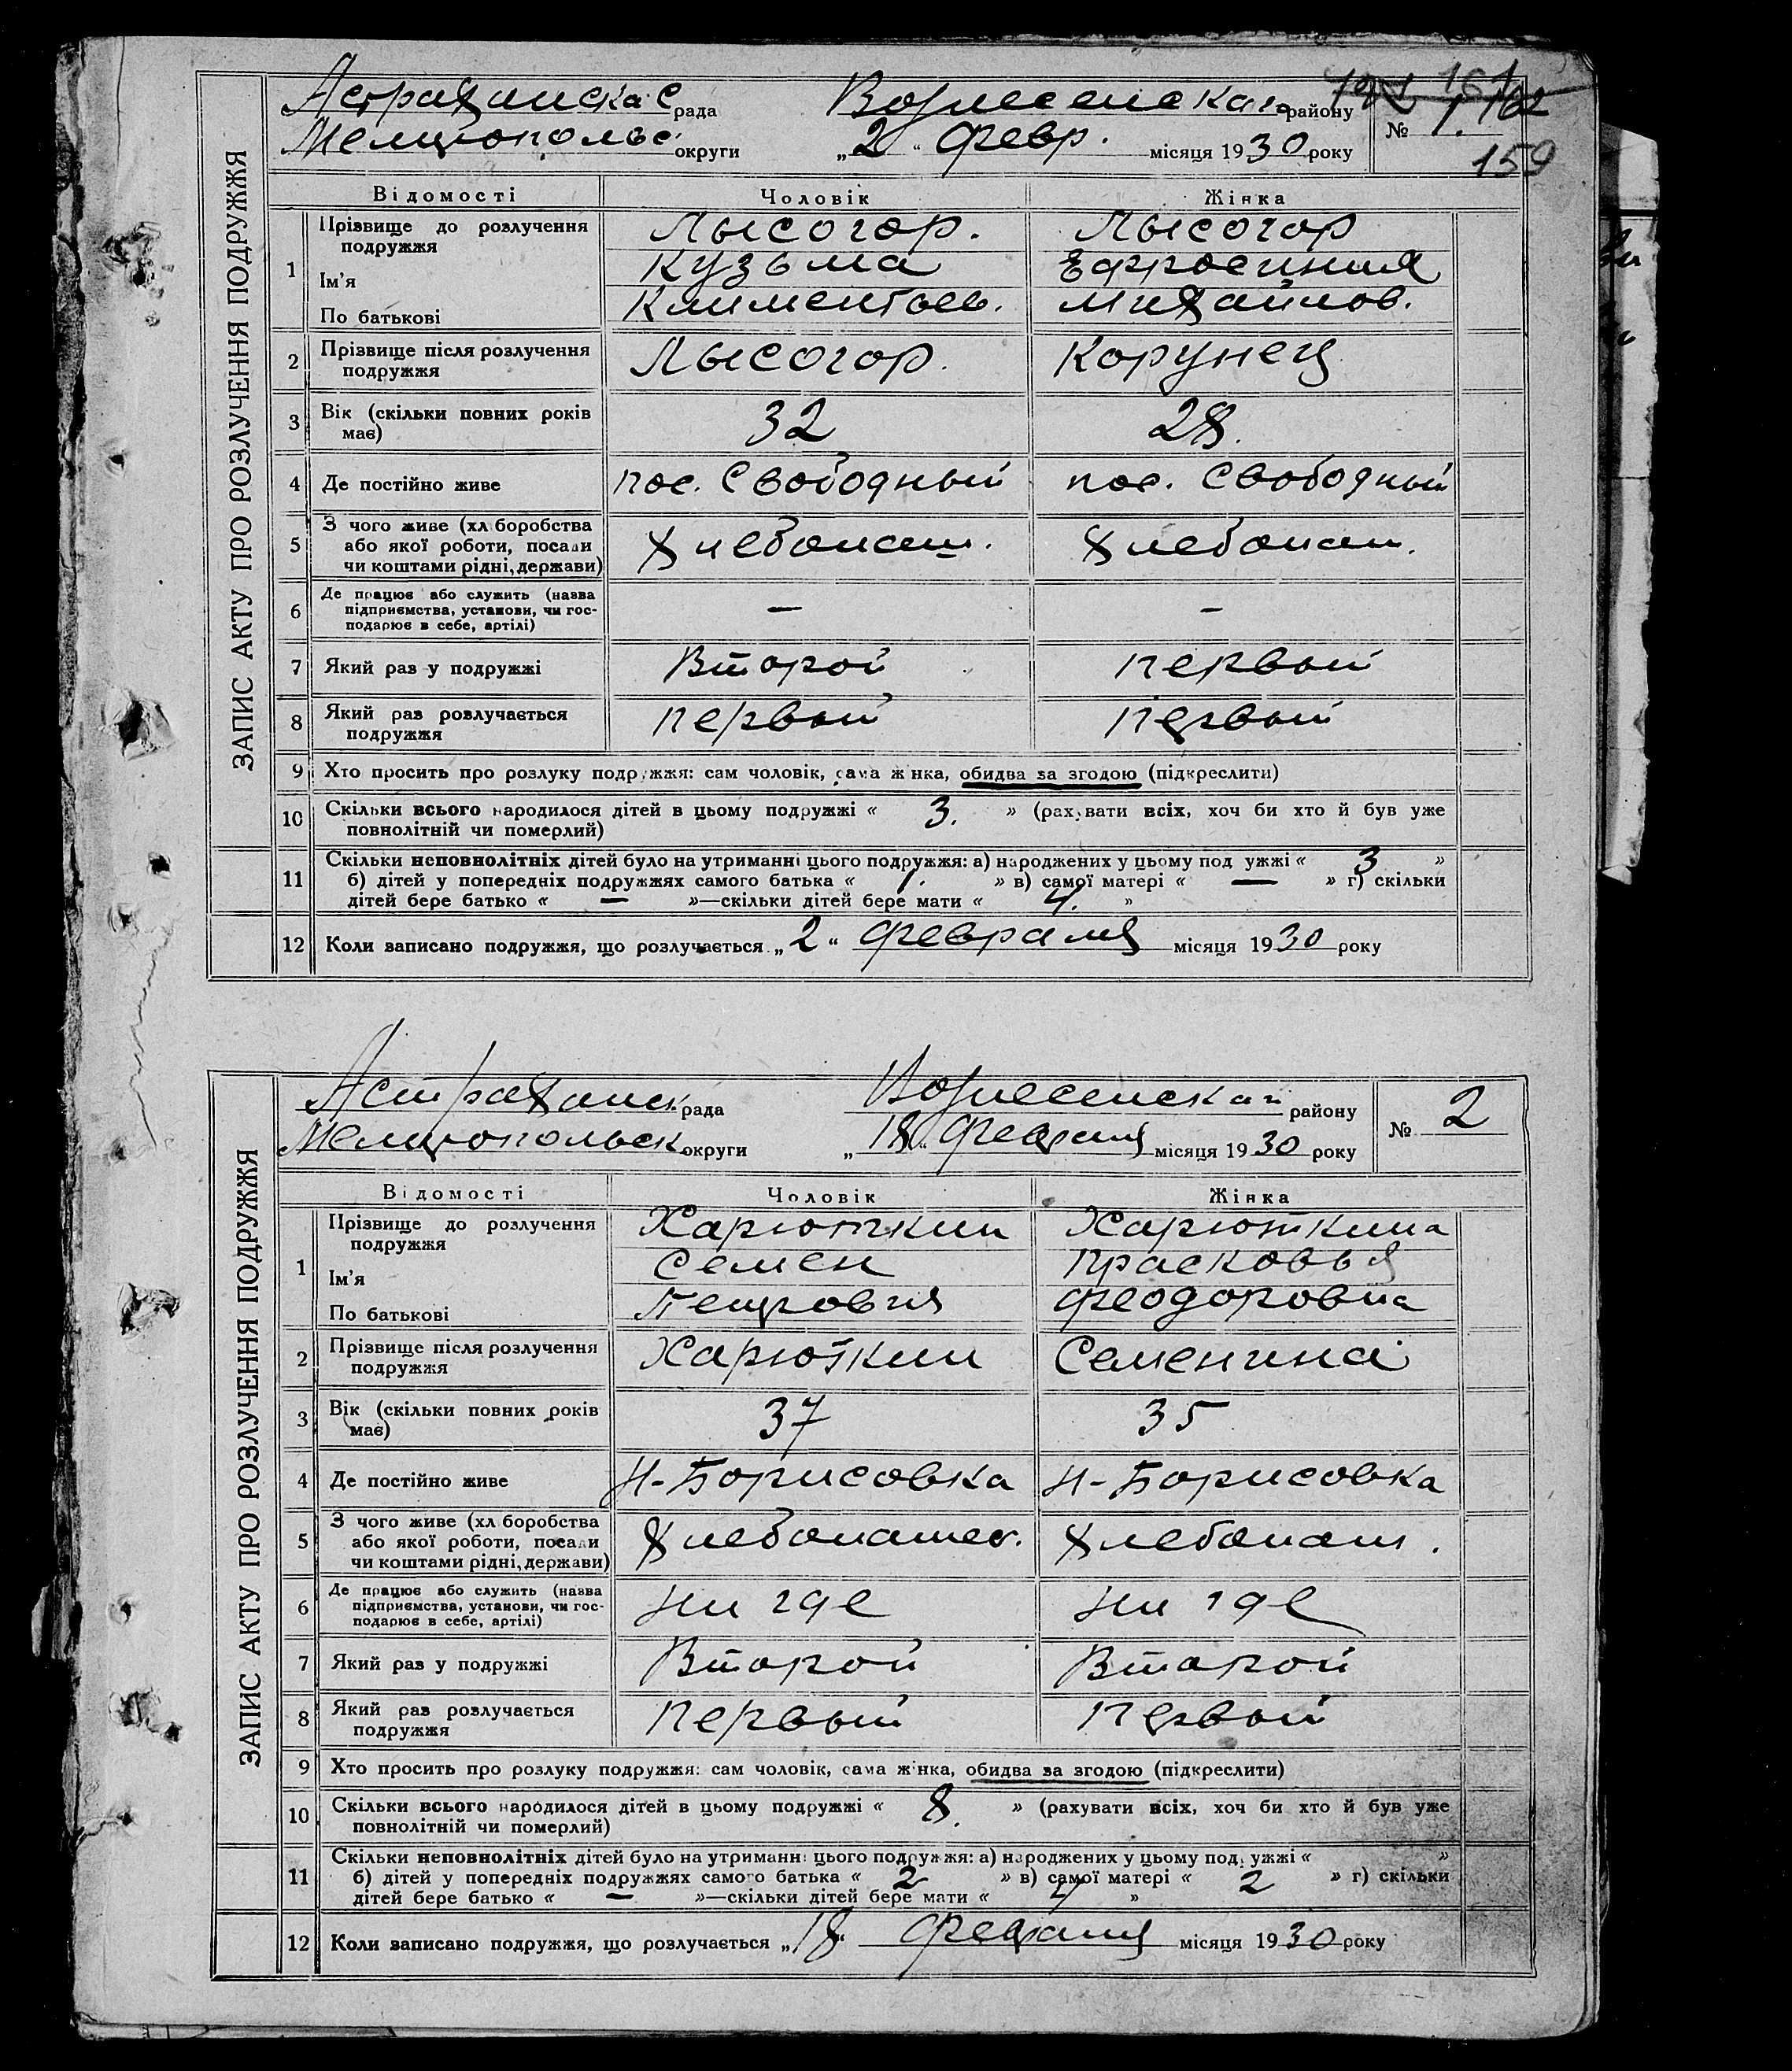 Астраханска С рада Вознесенскаго району 161 162
Мелитопольс. округи „2“ Февр. місяця 1930 року № 1.
159
ЗАПИС АКТУ ПРО РОЗЛУЧЕННЯ ПОДРУЖЖЯ
Відомості Чоловік Жінка
1 Прізвище до розлучення подружжя Лысогор. Лысогор
Ім'я Кузьма Ефросиния
По батькові Климентьев. Михайлов.
2 Прізвище після розлучення подружжя Лысогор. Корунец
3 Вік (скільки повних років має) 32 28.
4 Де постійно живе пос. Свободный пос. Свободный
5 З чого живе (хліборобства
або якої роботи, посади
чи коштами рідні, держави) Хлебопаш. Хлебопаш.
6 Де працює або служить (назва
підприємства, установи, чи гос-
подарює в себе, артілі) — —
7 Який раз у подружжі Второй первый
8 Який раз розлучається
подружжя первый первый
9 Хто просить про розлуку подружжя: сам чоловік, сама жінка, обидва за згодою (підкреслити)
10 Скільки всього народилося дітей в цьому подружжі « 3. » (рахувати всіх, хоч би хто й був уже
повнолітній чи померлий)
11 Скільки неповнолітніх дітей було на утриманні цього подружжя: а) народжених у цьому подружжі « 3 »
б) дітей у попередніх подружжях самого батька « 1. » в) самої матері « — » г) скільки
дітей бере батько « — »—скільки дітей бере мати « 4. »
12 Коли записано подружжя, що розлучається „2“ Февраля місяця 1930 року
Астраханск. рада Вознесенскаго району
Мелитопольск округи „18“ Февраля місяця 1930 року № 2
ЗАПИС АКТУ ПРО РОЗЛУЧЕННЯ ПОДРУЖЖЯ
Відомості Чоловік Жінка
1 Прізвище до розлучення подружжя Харюткин Харюткина
Ім'я Семен Прасковья
По батькові Петрович Феодоровна
2 Прізвище після розлучення подружжя Харюткин Семенина
3 Вік (скільки повних років має) 37 35
4 Де постійно живе Н-Борисовка Н-Борисовка
5 З чого живе (хліборобства
або якої роботи, посади
чи коштами рідні, держави) Хлебопашес. Хлебопаш.
6 Де працює або служить (назва
підприємства, установи, чи гос-
подарює в себе, артілі) ни где ни где
7 Який раз у подружжі Второй Второй
8 Який раз розлучається
подружжя первый первый
9 Хто просить про розлуку подружжя: сам чоловік, сама жінка, обидва за згодою (підкреслити)
10 Скільки всього народилося дітей в цьому подружжі « 8. » (рахувати всіх, хоч би хто й був уже
повнолітній чи померлий)
11 Скільки неповнолітніх дітей було на утриманні цього подружжя: а) народжених у цьому подружжі « »
б) дітей у попередніх подружжях самого батька « 2 » в) самої матері « 2 » г) скільки
дітей бере батько « — »—скільки дітей бере мати « 4 »
12 Коли записано подружжя, що розлучається „18“ Февраля місяця 1930 року